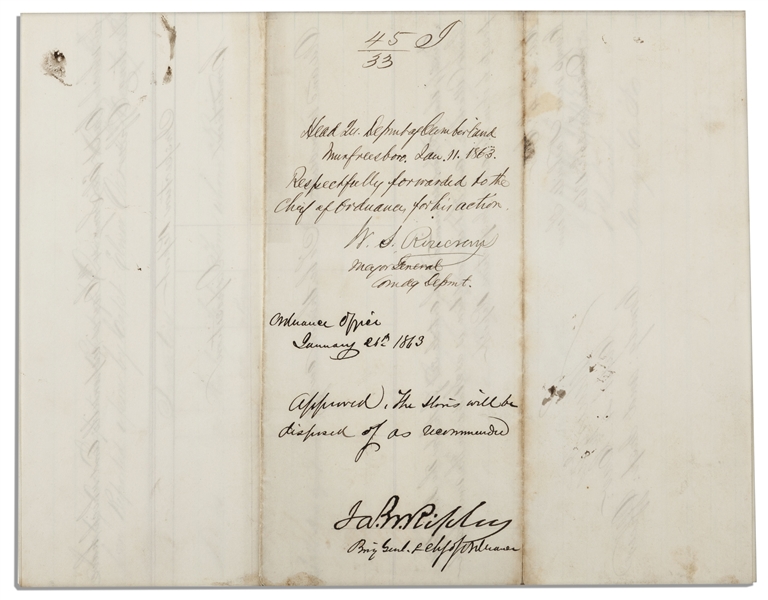 45 I
33
Head Qr. Depmt of Cumberland
Murfreesboro. Jan. 11. 1863.
Respectfully forwarded to the
Chief of Ordnance, for his action.
W. S. Rosecrans
Major General
Comdg Depmt.
Ordnance Office
January 21st 1863
Approved. The stores will be
disposed of as recommended
Jas. W. Ripley
Brig Genl. & Chf of Ordnance